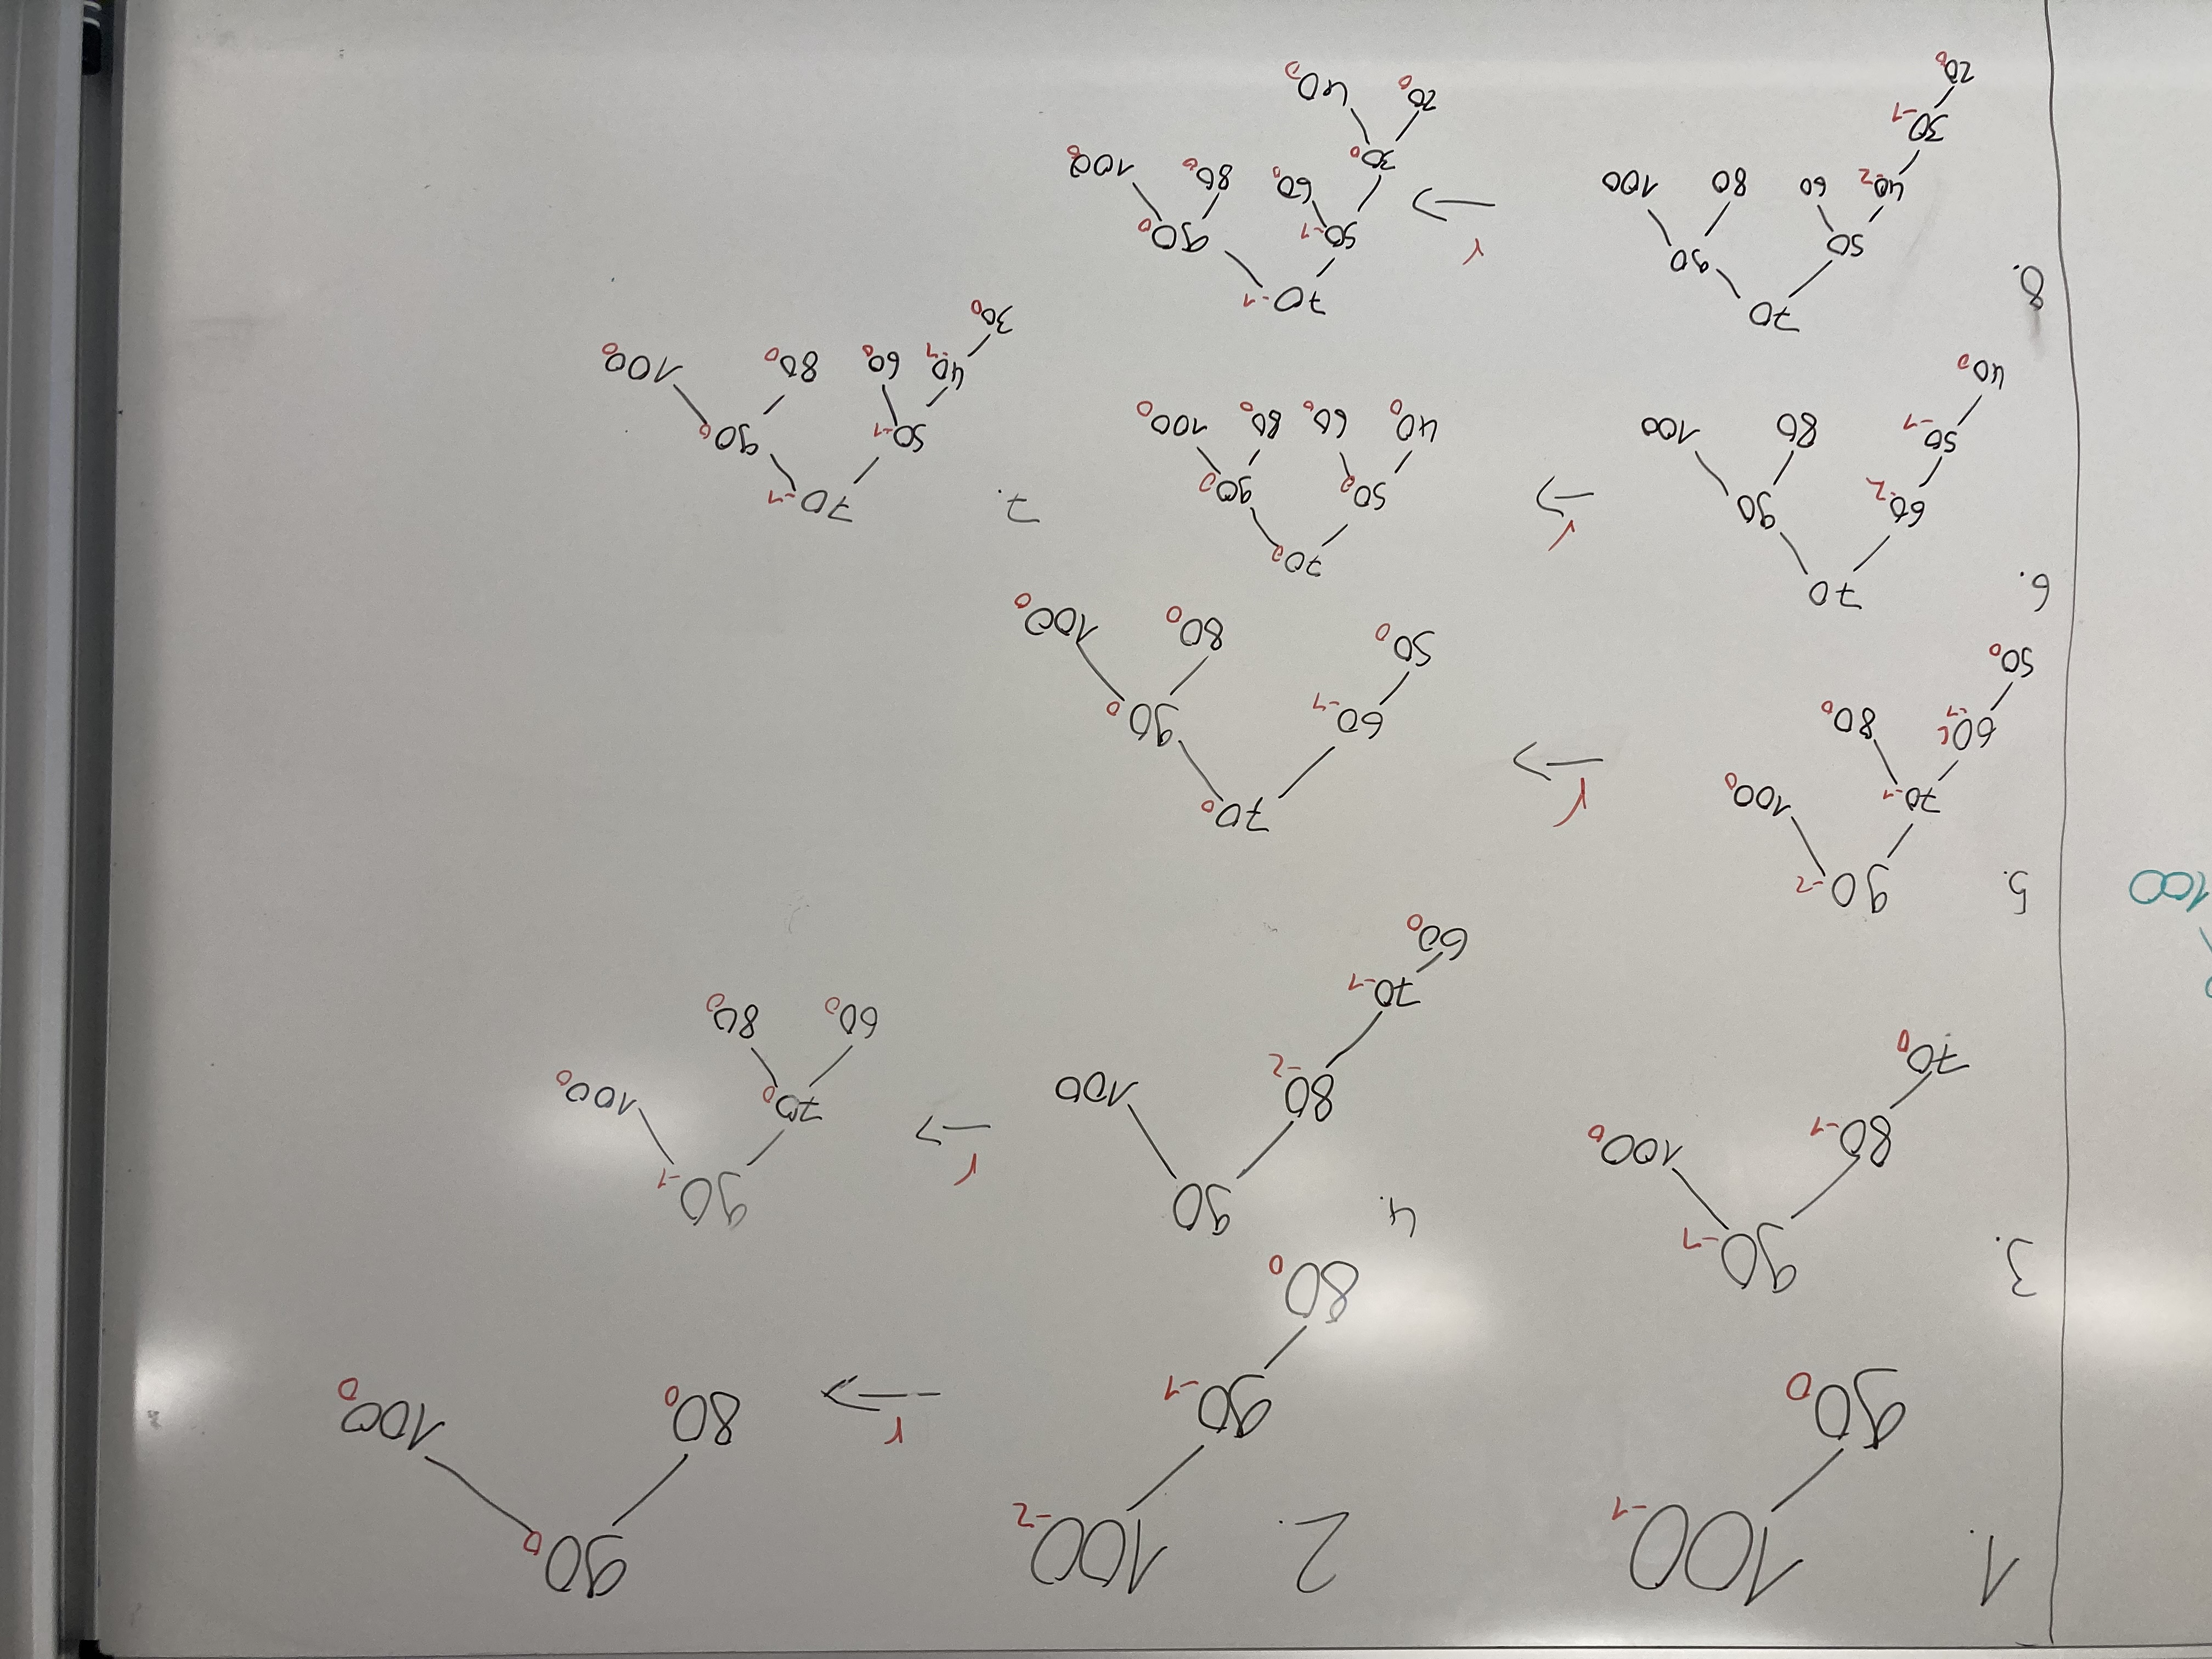 1. 100-1
90 0
2. 100-2
90-1
80 0
r
90 0
80 0 100 0
3. 90-1
80-1 100 0
70 0
4. 90
80-2 100
70-1
60 0
r
90-1
70 0 100 0
60 0 80 0
100
5. 90-2
70-1 100 0
60-1 80 0
50 0
r
70 0
60-1 90 0
50 0 80 0 100 0
6. 70
60-2 90
50-1 80 100
40 0
r
70 0
50 0 90 0
40 0 60 0 80 0 100 0
7. 70-1
50-1 90 0
40-1 60 0 80 0 100 0
30 0
8. 70
50 90
40-2 60 80 100
30-1
20 0
r
70-1
50-1 90 0
30 0 60 0 80 0 100 0
20 0 40 0